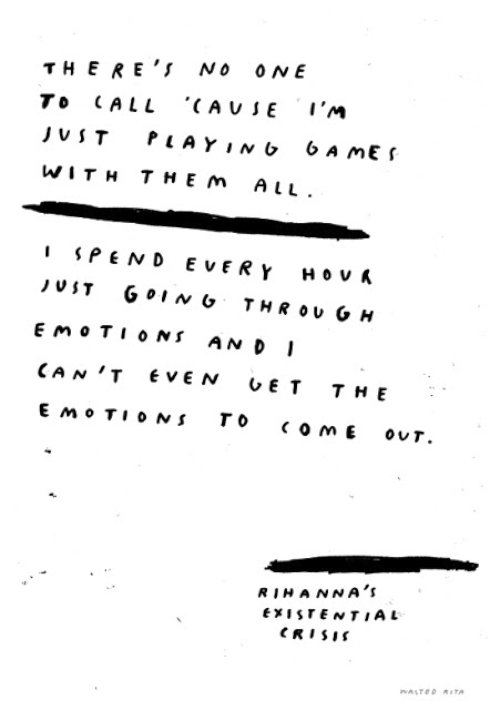 THERE'S NO ONE
TO CALL 'CAUSE I'M
JUST PLAYING GAMES
WITH THEM ALL.
I SPEND EVERY HOUR
JUST GOING THROUGH
EMOTIONS AND I
CAN'T EVEN GET THE
EMOTIONS TO COME OUT.
RIHANNA'S
EXISTENTIAL
CRISIS
WASTED RITA